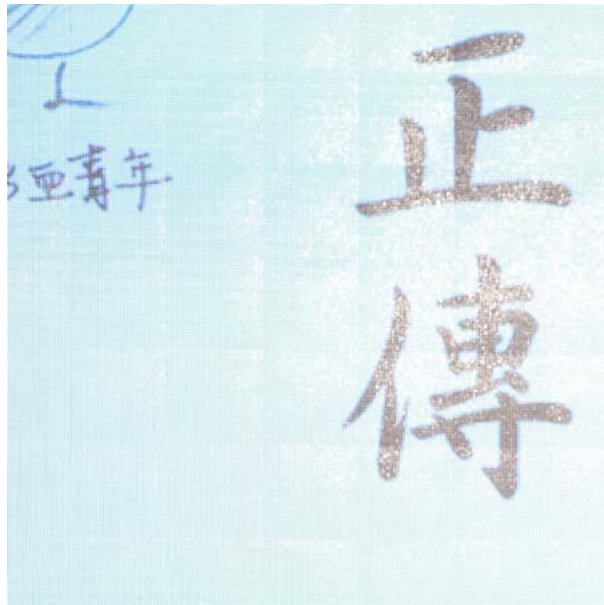 正傳
青年